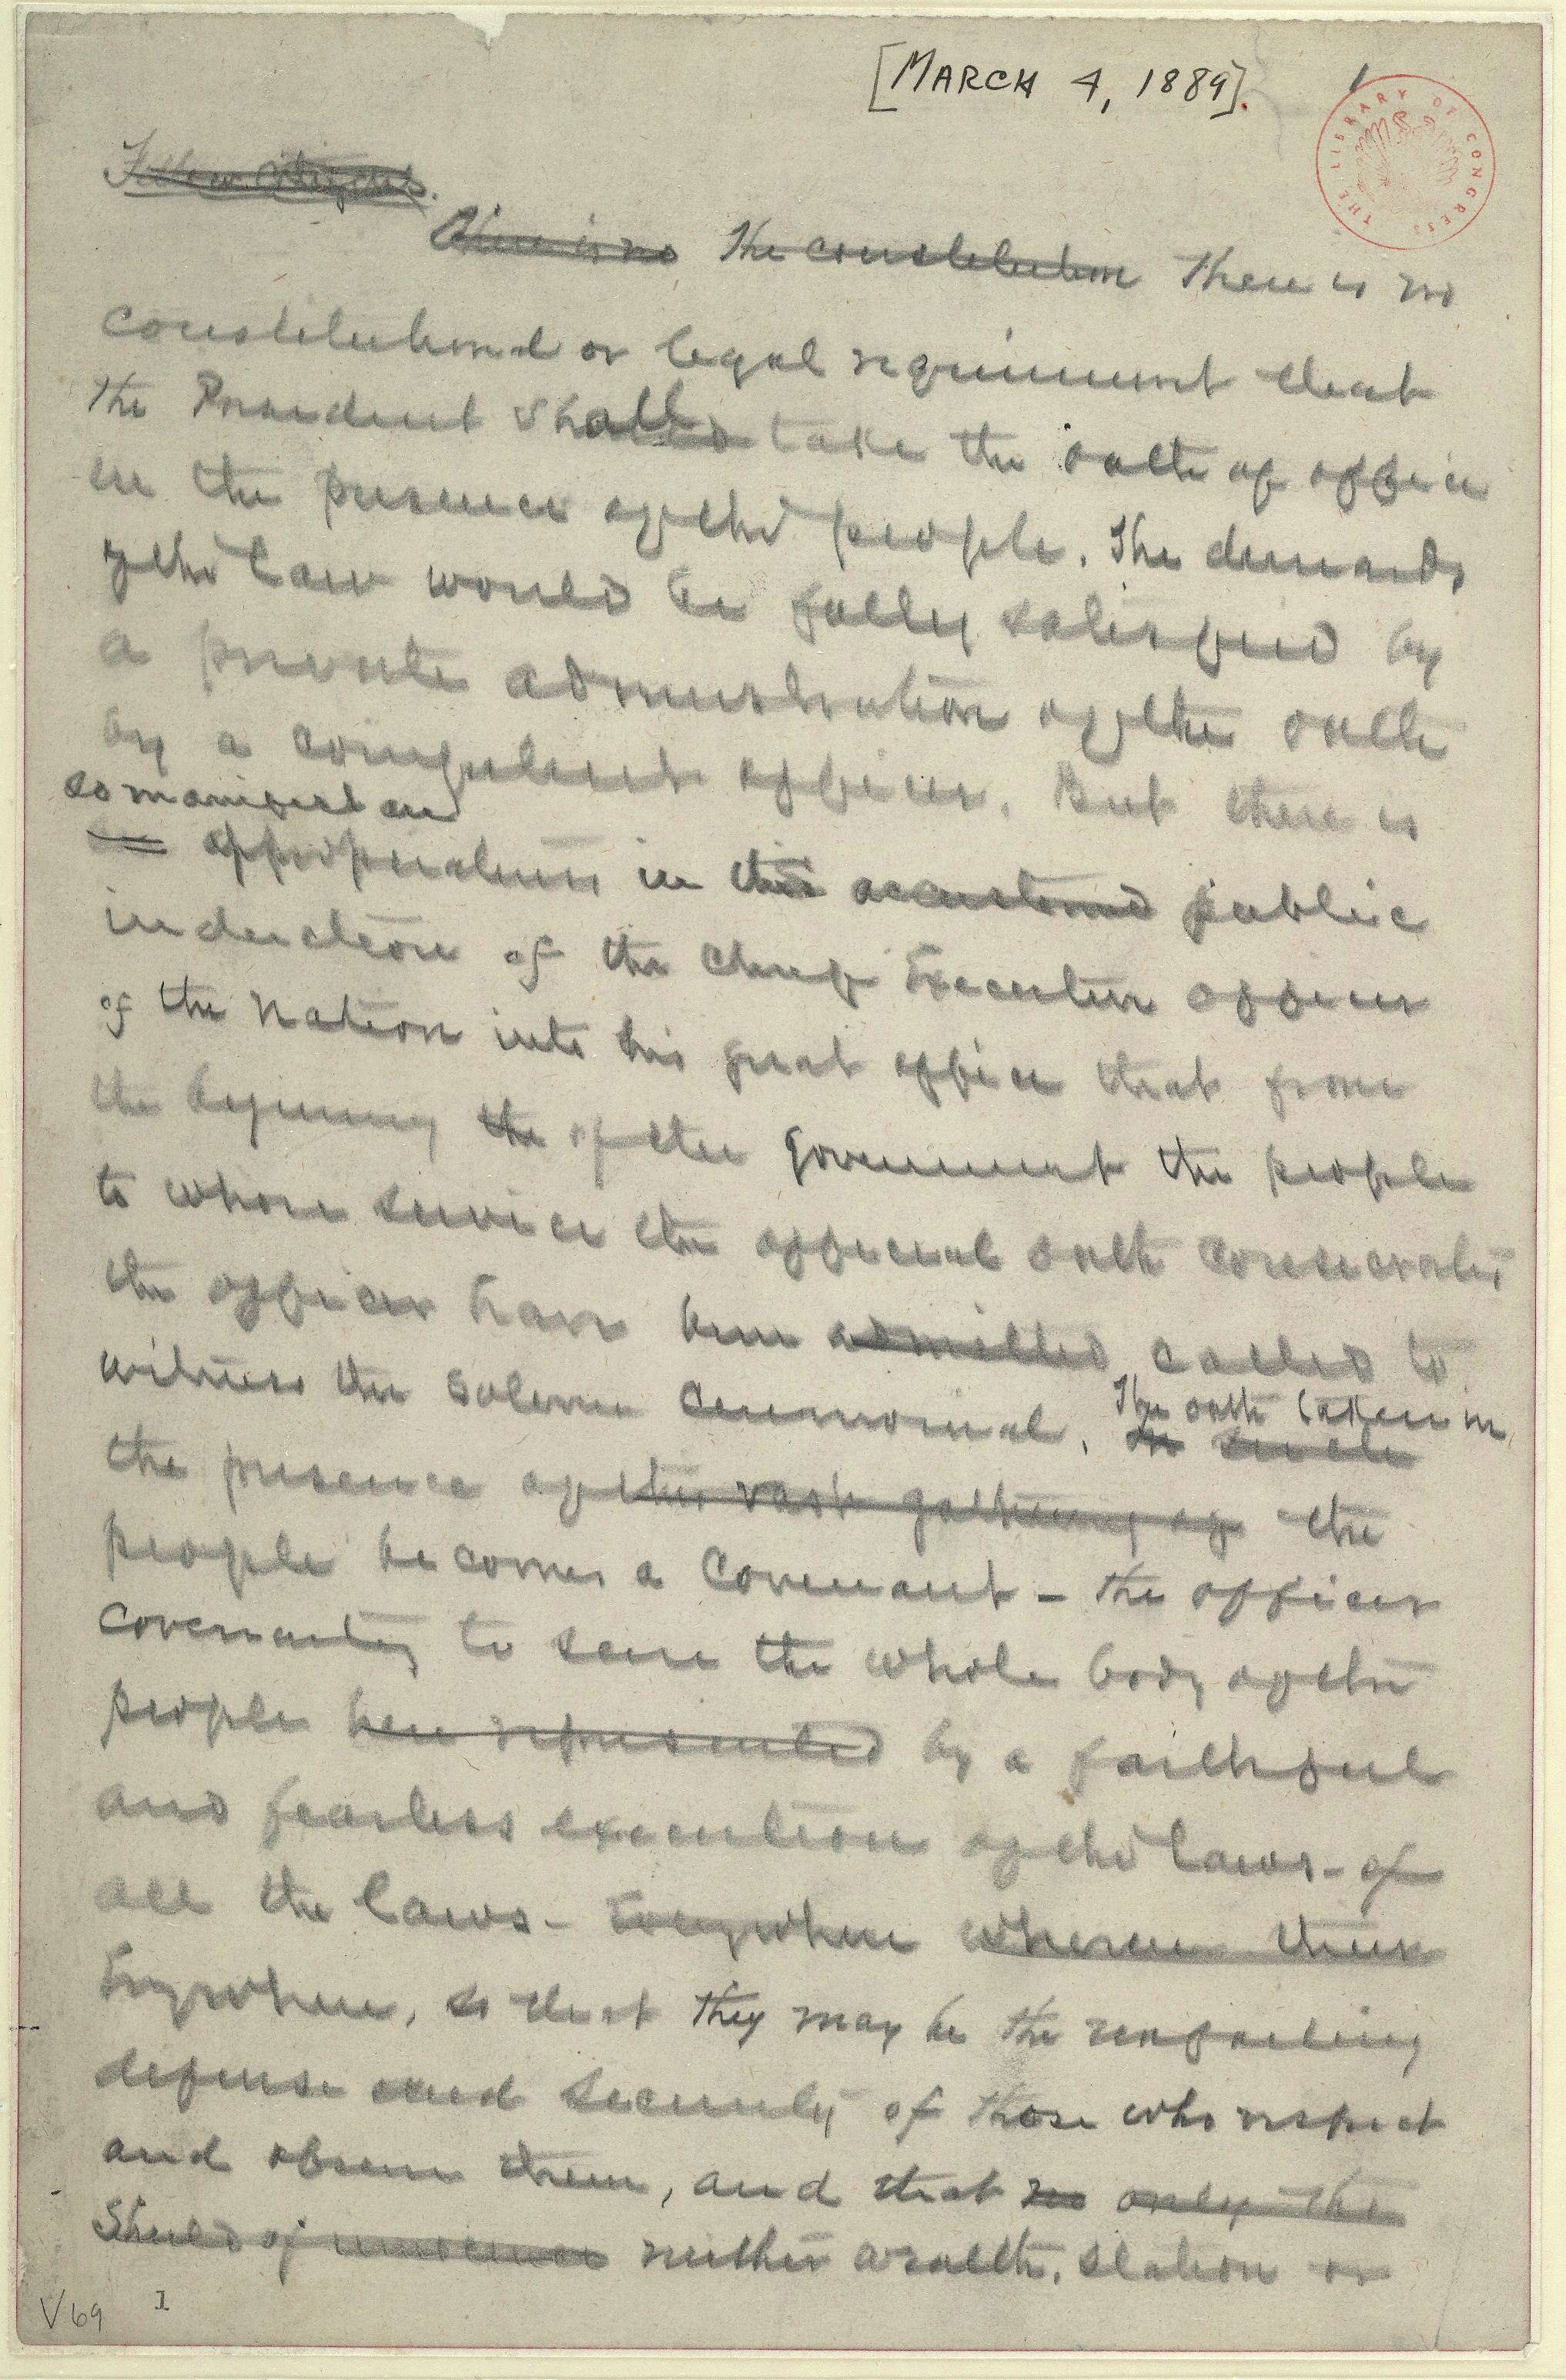 [MARCH 4, 1889]. 1
THE LIBRARY OF CONGRESS
Fellow Citizens.
There is no The constitution There is no
constitutional or legal requirement that
the President shall take the oath of office
in the presence of the people. The demands
of the law would be fully satisfied by
a private administration of the oath
by a competent officer. But there is
so manifest an
an appropriateness in the accustomed public
induction of the chief Executive officer
of the Nation into his great office that from
the beginning the of the government the people
to whose service the official oath consecrates
the officer have been admitted called to
witness the solemn ceremonial. The oath taken in
the presence of this vast gathering of the
people becomes a Covenant - the officer
covenanting to serve the whole body of the
people here represented by a faithful
and fearless execution of the laws - of
all the laws - Everywhere
Everywhere, so that they may be the unfailing
defense and security of those who respect
and observe them, and that no only the
Shield of neither wealth, station or
V69 1